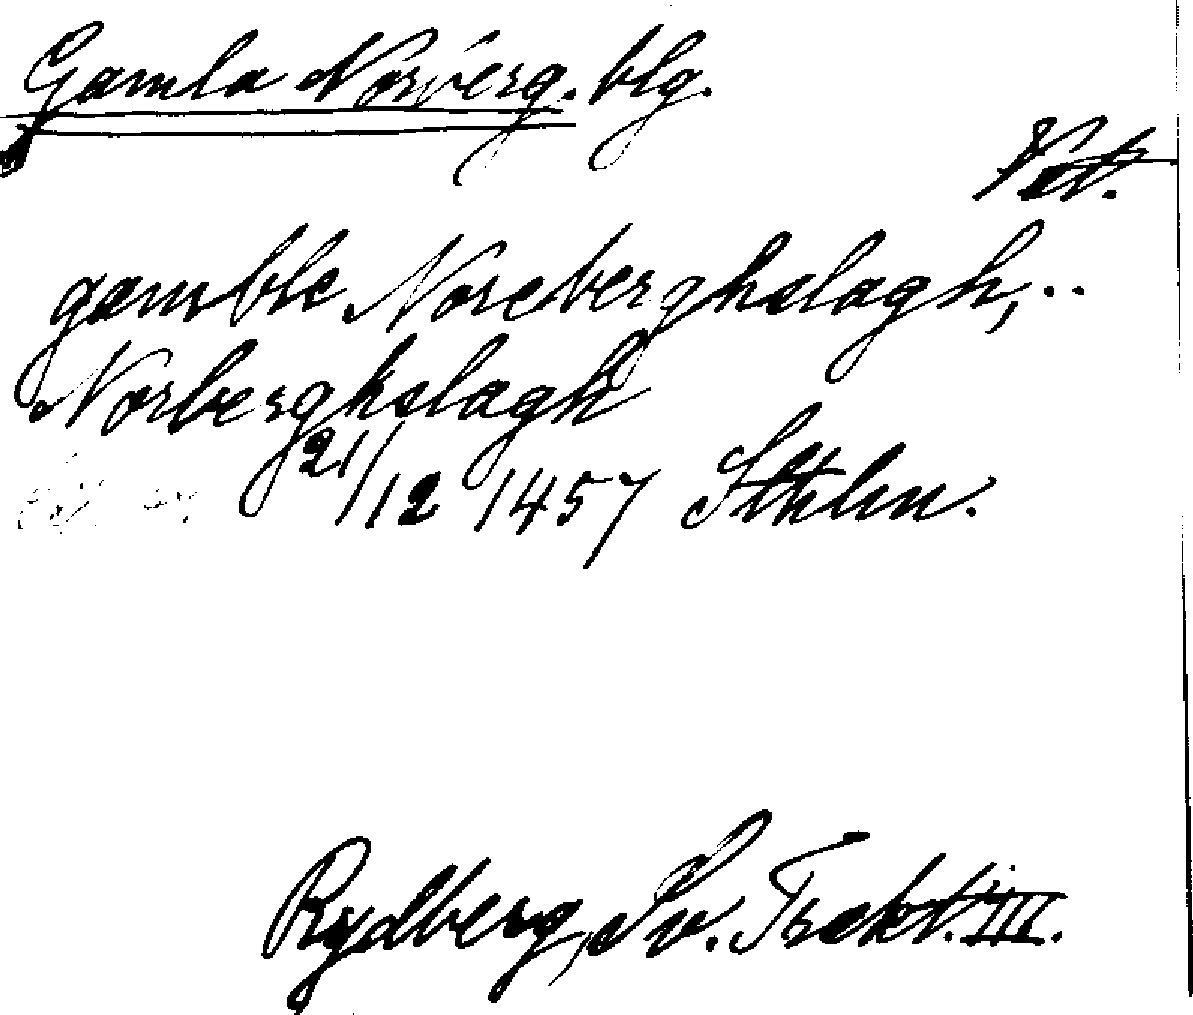 Gamla Norberg. blg.
Vstm.
gamble Noreberghslagh, ..
Norberghslagh
21/12 1457 Sthlm.
Rydberg, Sv. Trakt. III.